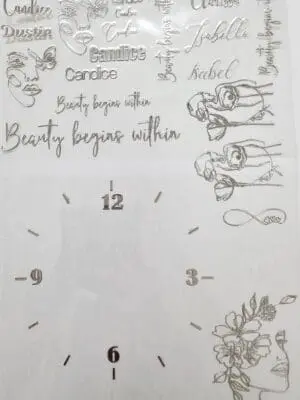 Candice
Dustin
Candice
Candice
Candice
Candice
Beauty begins within
Isabelle
Isabel
Beauty begins within
Beauty begins within
Beauty begins within
12
9
3
6